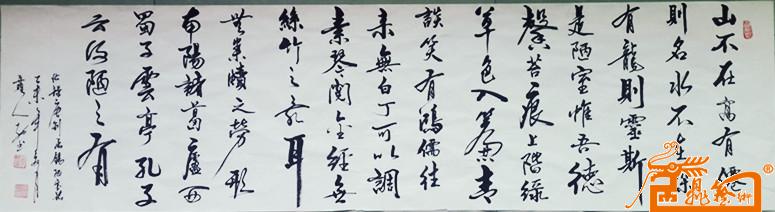 山不在高有僊
則名水不在深
有龍則靈斯
是陋室惟吾德
馨苔痕上階緑
草色入簾青
談笑有鴻儒往
来無白丁可以調
素琴閱金經無
絲竹之亂耳
無案牘之勞形
南陽諸葛廬西
蜀子雲亭孔子
云何陋之有
唐劉禹錫陋室銘
乙未年月